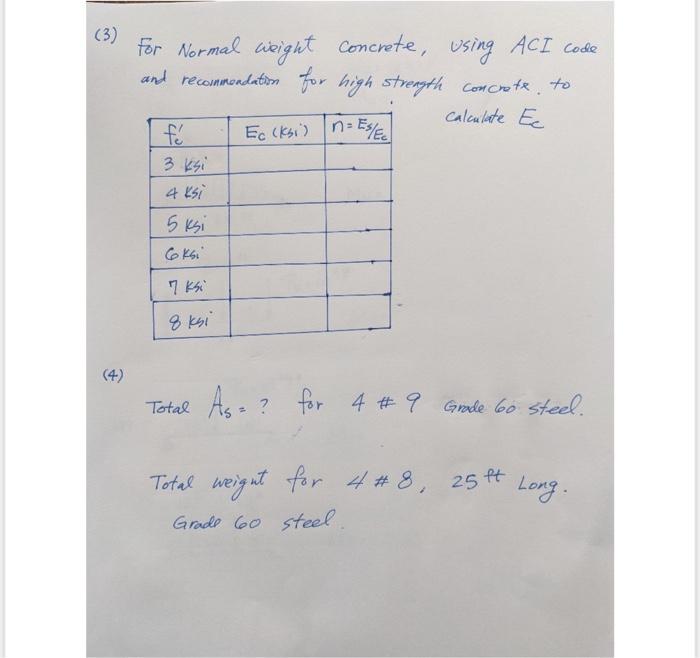 (3)
For Normal weight concrete, using ACI code
and recommendation for high strength concrete. to
calculate Ec
f'c Ec (ksi) n = Es/Ec
3 ksi
4 ksi
5 ksi
6 ksi
7 ksi
8 ksi
(4)
Total As = ? for 4 # 9 Grade 60 steel.
Total weight for 4 # 8, 25 ft Long.
Grade 60 steel.